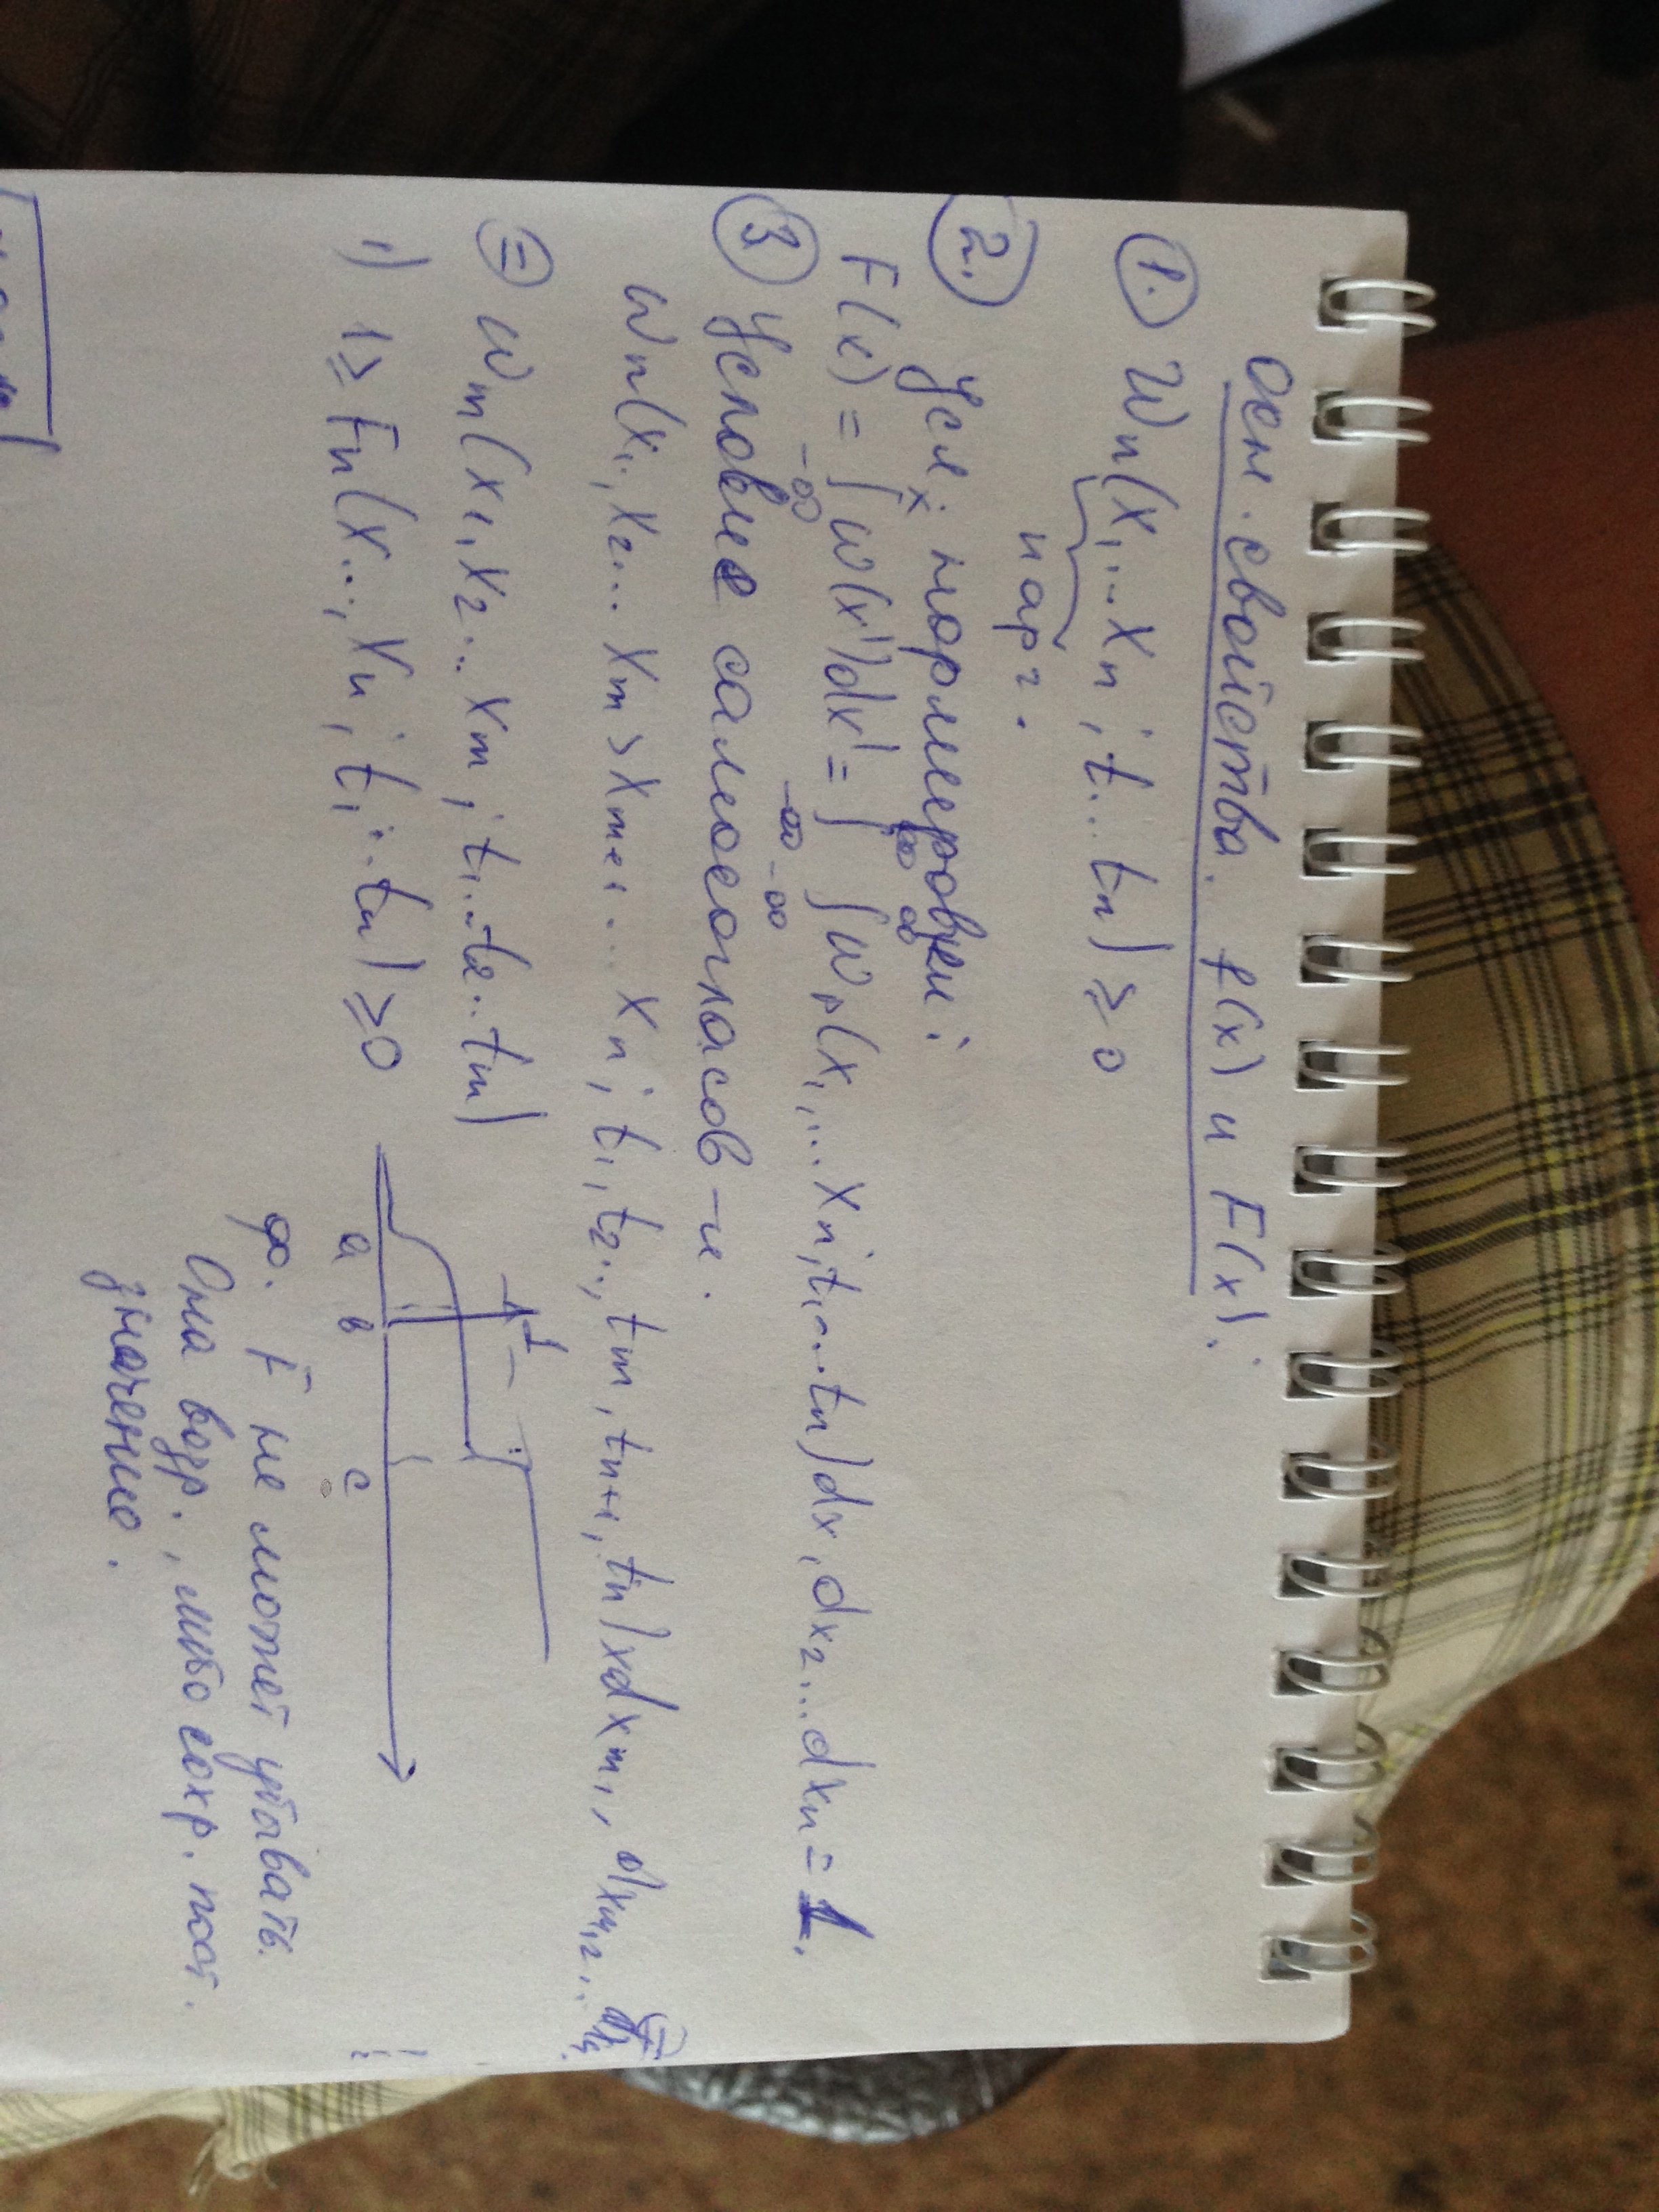 Осн. свойства. f(x) и F(x):
1. Wn(x1...xn; t...tn) ≥ 0
n арг.
2. Усл. нормировки:
F(x) = ∫ w(x')dx' = ∫ ∫ wn(x1,...xn; t1...tn)dx1dx2...dxn = 1.
x ∞ ∞
-∞ -∞ -∞
3 Условие самосогласов-и.
wn(x1, x2... xm, xm+1... xn; t1, t2.., tm, tn+1, tn)xdxm1,
= wm(x1, x2... xm; t1...t2..tm)
1) 1 ≥ Fn(x..., xn; t1..tn) ≥ 0
1
a в c
ф. F не может убывать.
Она возр., либо сохр. пост.
значение.